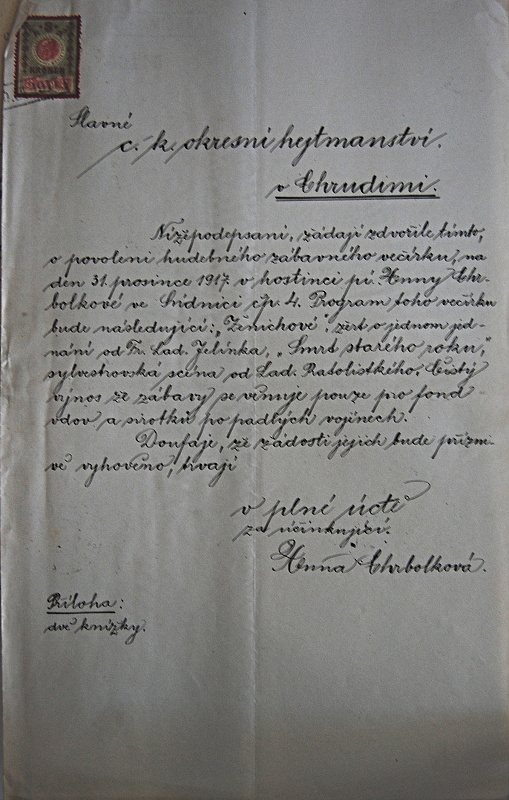 Slavné
c. k. okresní hejtmanství.
v Chrudimi.
Nížepodepsaní, žádají zdvořile tímto,
o povolení hudebného zábavného večírku, na
den 31. prosince 1917 v hostinci pí. Anny Chr-
bolkové ve Snidnici čp. 4. Program toho večírku
bude následující: „Ženichové", žert o jednom jed-
nání od Fr. Lad. Jelínka, „Smrt starého roku,"
sylvestrovská scéna od Lad. Čistý
výnos ze zábavy se věnuje pouze pro fond
vdov a sirotků po padlých vojínech.
Doufaje, že žádosti jejich bude přízni-
vě vyhověno, trvají
v plné úctě
za účinkující.
Anna Chrbolková.
Příloha:
dvě knížky.